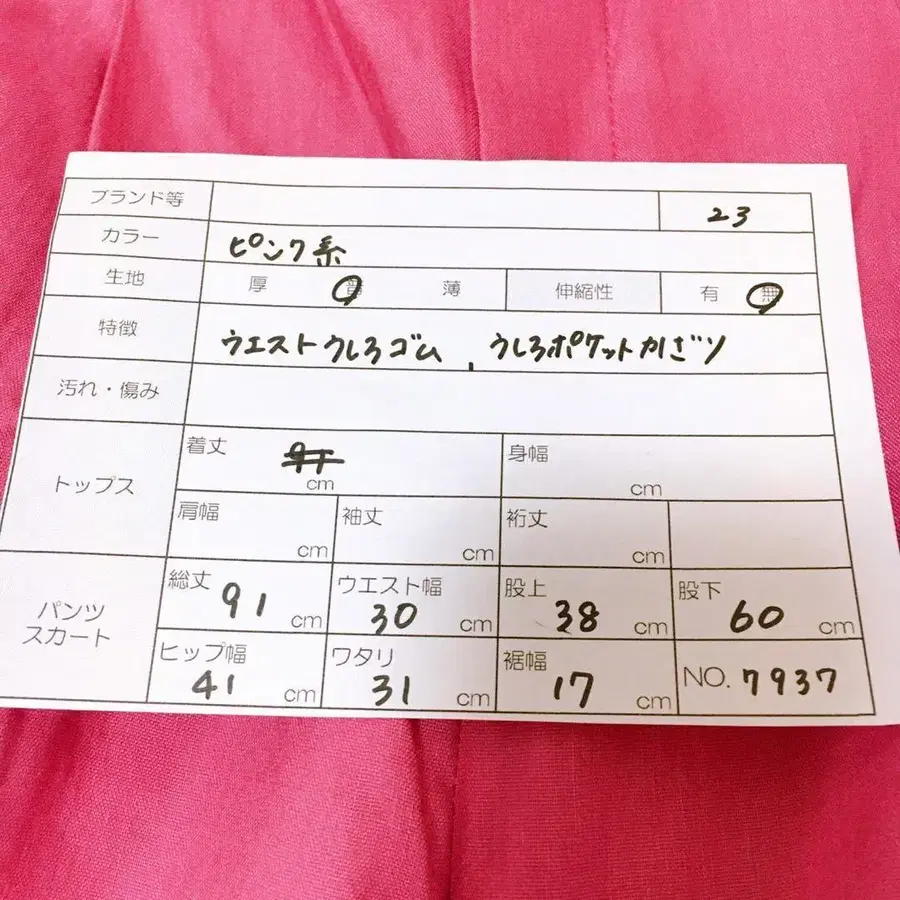 ブランド等 23
カラー ピンク系
生地 厚 普 薄 伸縮性 有 無
特徴 ウエストうしろゴム、うしろポケットかざり
汚れ・傷み
トップス 着丈 cm 身幅 cm
肩幅 cm 袖丈 cm 裄丈 cm
パンツ スカート 総丈 91 cm ウエスト幅 30 cm 股上 38 cm 股下 60 cm
ヒップ幅 41 cm ワタリ 31 cm 裾幅 17 cm NO. 7937